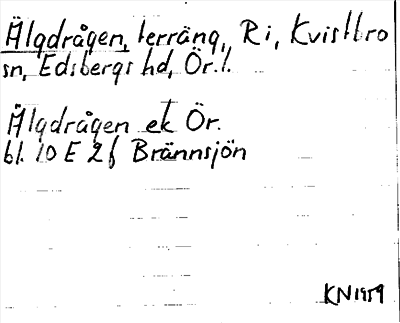 Älgdrågen, terräng, Ri, Kvistbro
sn, Edsbergs hd, Ör.l.
Älgdrågen ek Ör.
bl. 10 E 2 f Brännsjön
KN1959